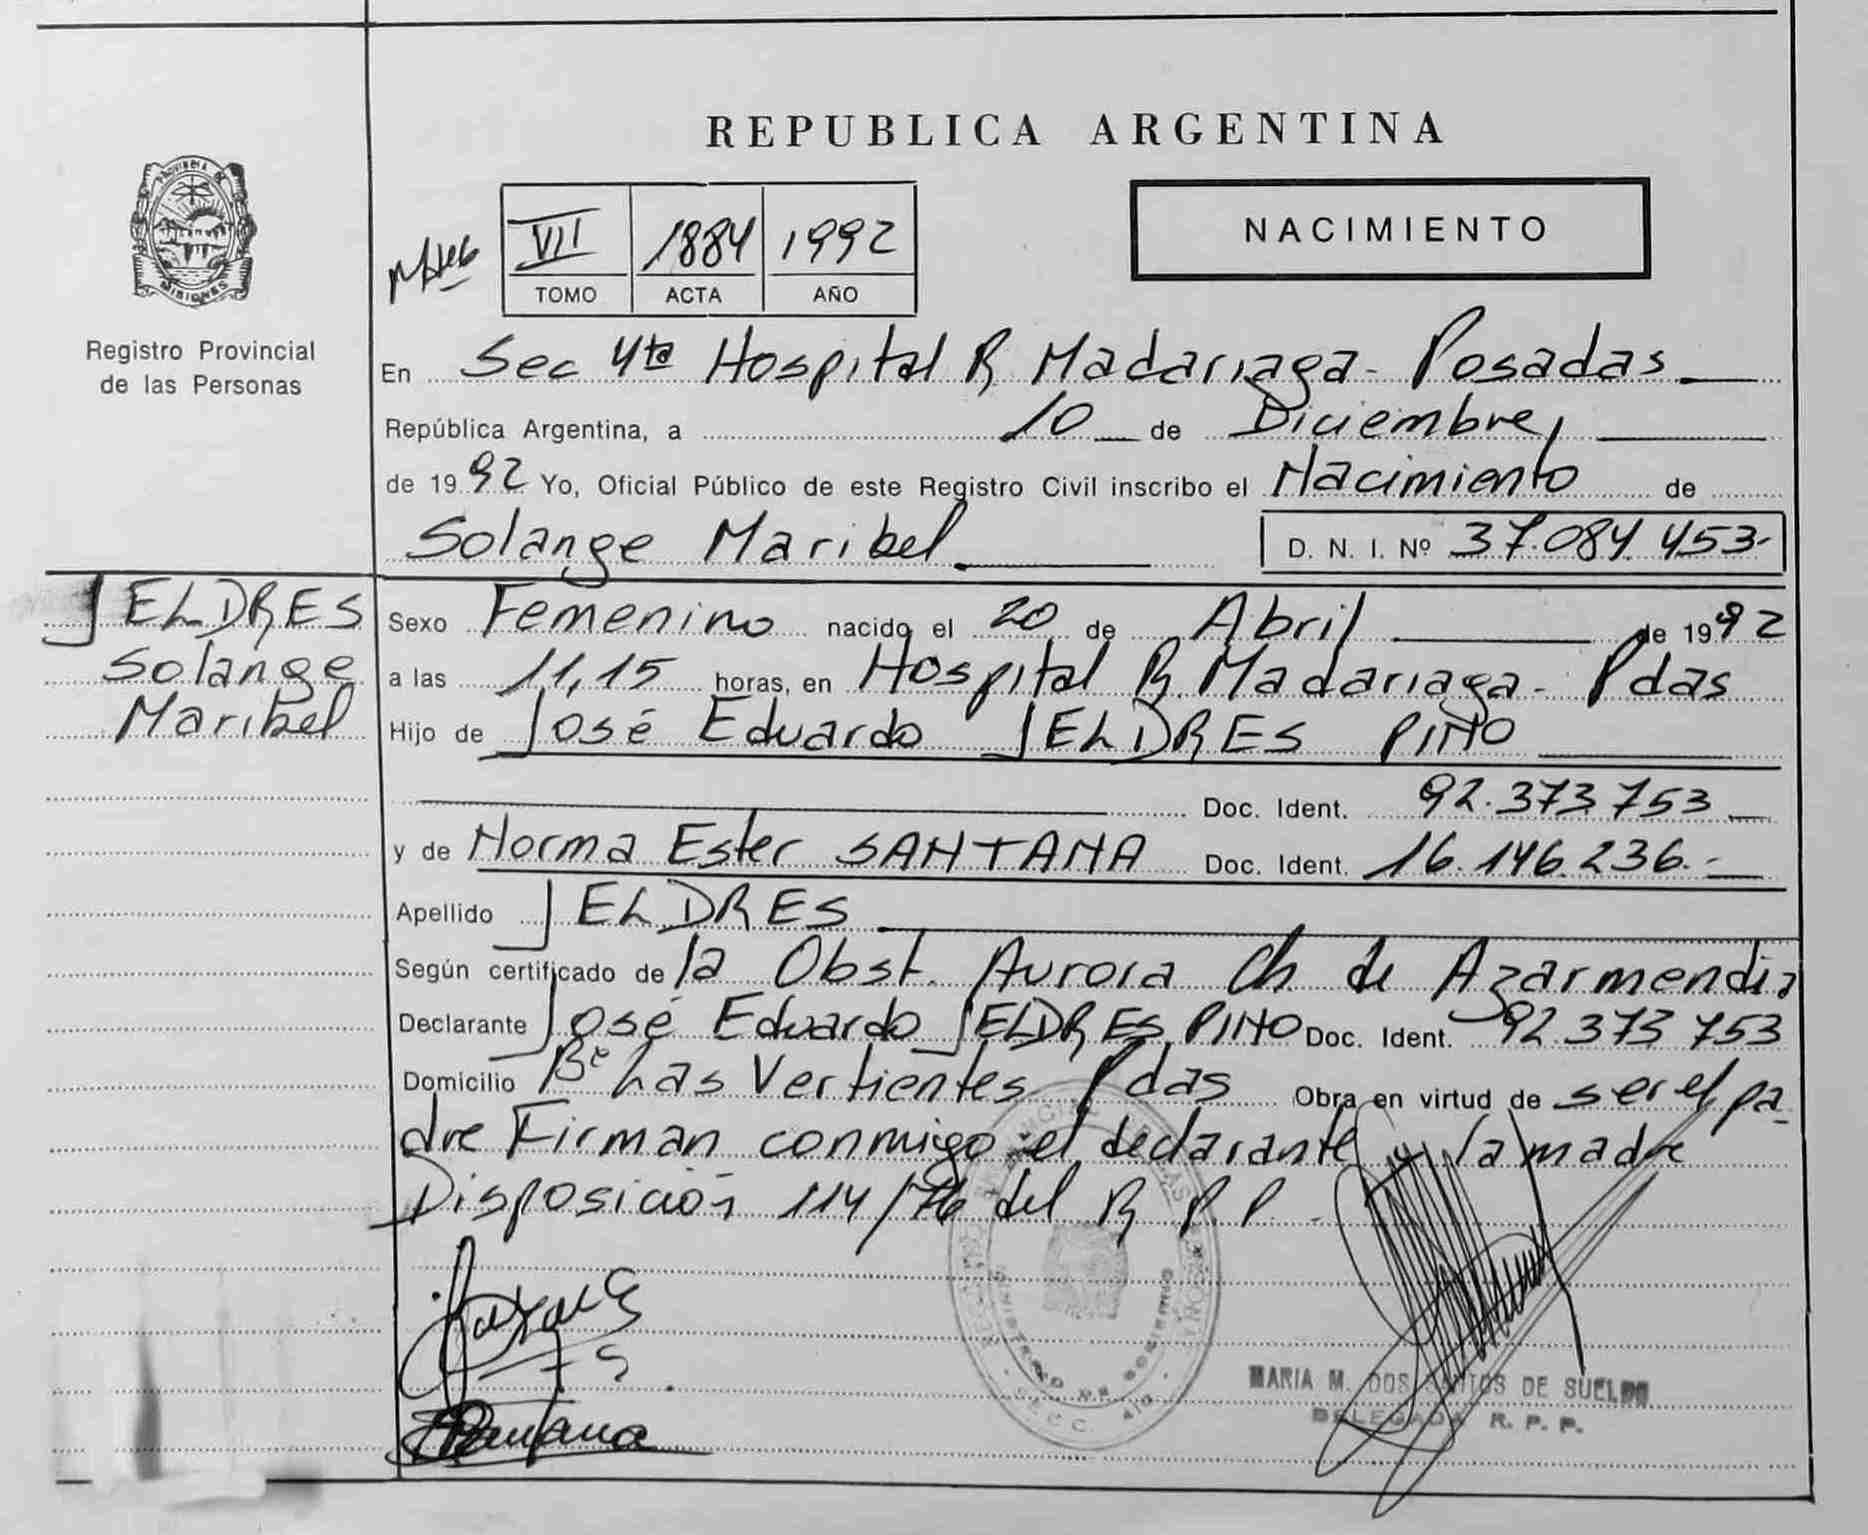 REPUBLICA ARGENTINA
PROVINCIA DE
MISIONES
Registro Provincial
de las Personas
VII 1884 1992
TOMO ACTA AÑO
NACIMIENTO
En Sec 4ta Hospital R Madariaga - Posadas
República Argentina, a 10 de Diciembre,
de 1992 Yo, Oficial Público de este Registro Civil inscribo el Nacimiento de
Solange Maribel D. N. I. Nº 37.084 453-
JELDRES
Solange
Maribel
Sexo Femenino nacido el 20 de Abril de 1992
a las 11,15 horas, en Hospital R. Madariaga - Pdas
Hijo de José Eduardo JELDRES PINO
Doc. Ident. 92.373 753
y de Norma Ester SANTANA Doc. Ident. 16.146.236.-
Apellido JELDRES
Según certificado de la Obst. Aurora Ch de Azarmendia
Declarante José Eduardo JELDRES PINO Doc. Ident. 92.373 753
Domicilio Bº Las Vertientes Pdas Obra en virtud de ser el pa-
dre Firman conmigo el declarante y la madre
Disposición 114/76 del R P. P.
MARIA M. DOS SANTOS DE SUELDO
DELEGADA R. P. P.
Santana